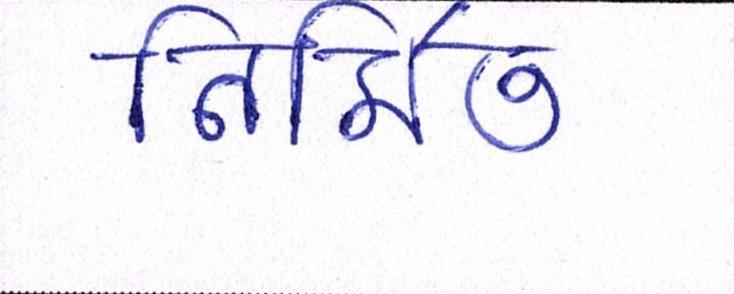 নির্মিত